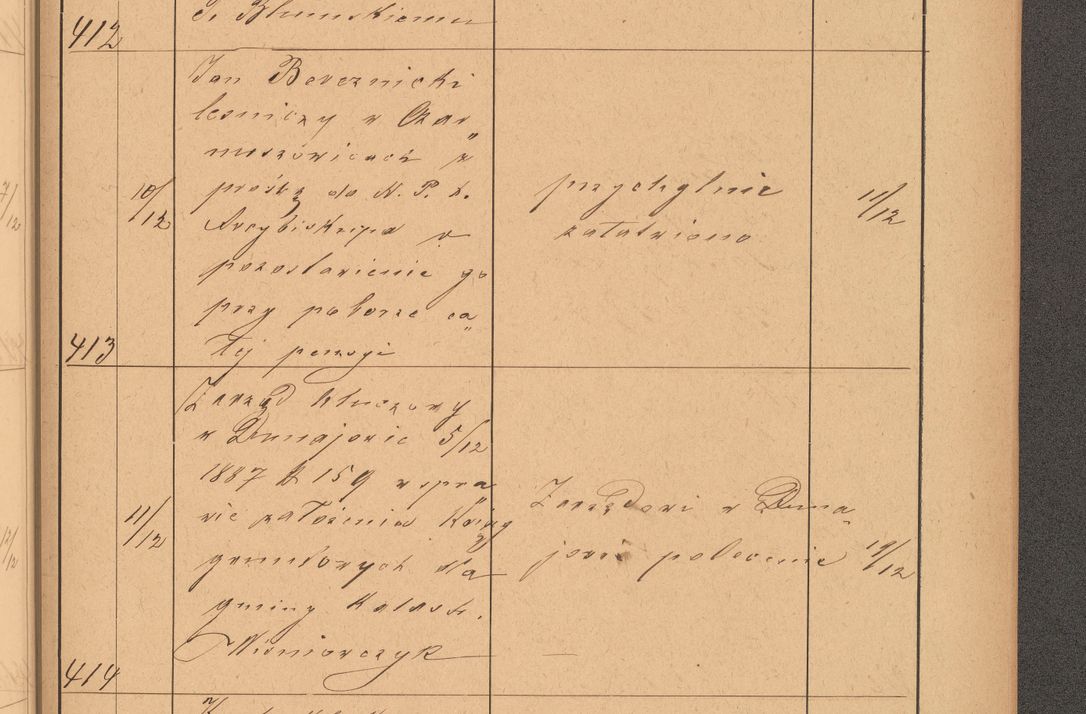 412
P. Blumskiemu
Jan Bereznicki
lesniczy w Czar„
nuszowicach z
prośbą do N. P. X.
Arcybiskupa o
pozostawienie go
przy poborze ca„
łej pensyi
10/12
przychylnie
załatwiono
11/12
413
Zarząd kluczowy
w Dunajowie 5/12
1887 L 159 w spra„
wie założenia Ksiąg
gruntowych dla
gminy katastr.
Wiśniowczyk
11/12
Zarządowi w Duna„
jowie polecenie
19/12
414